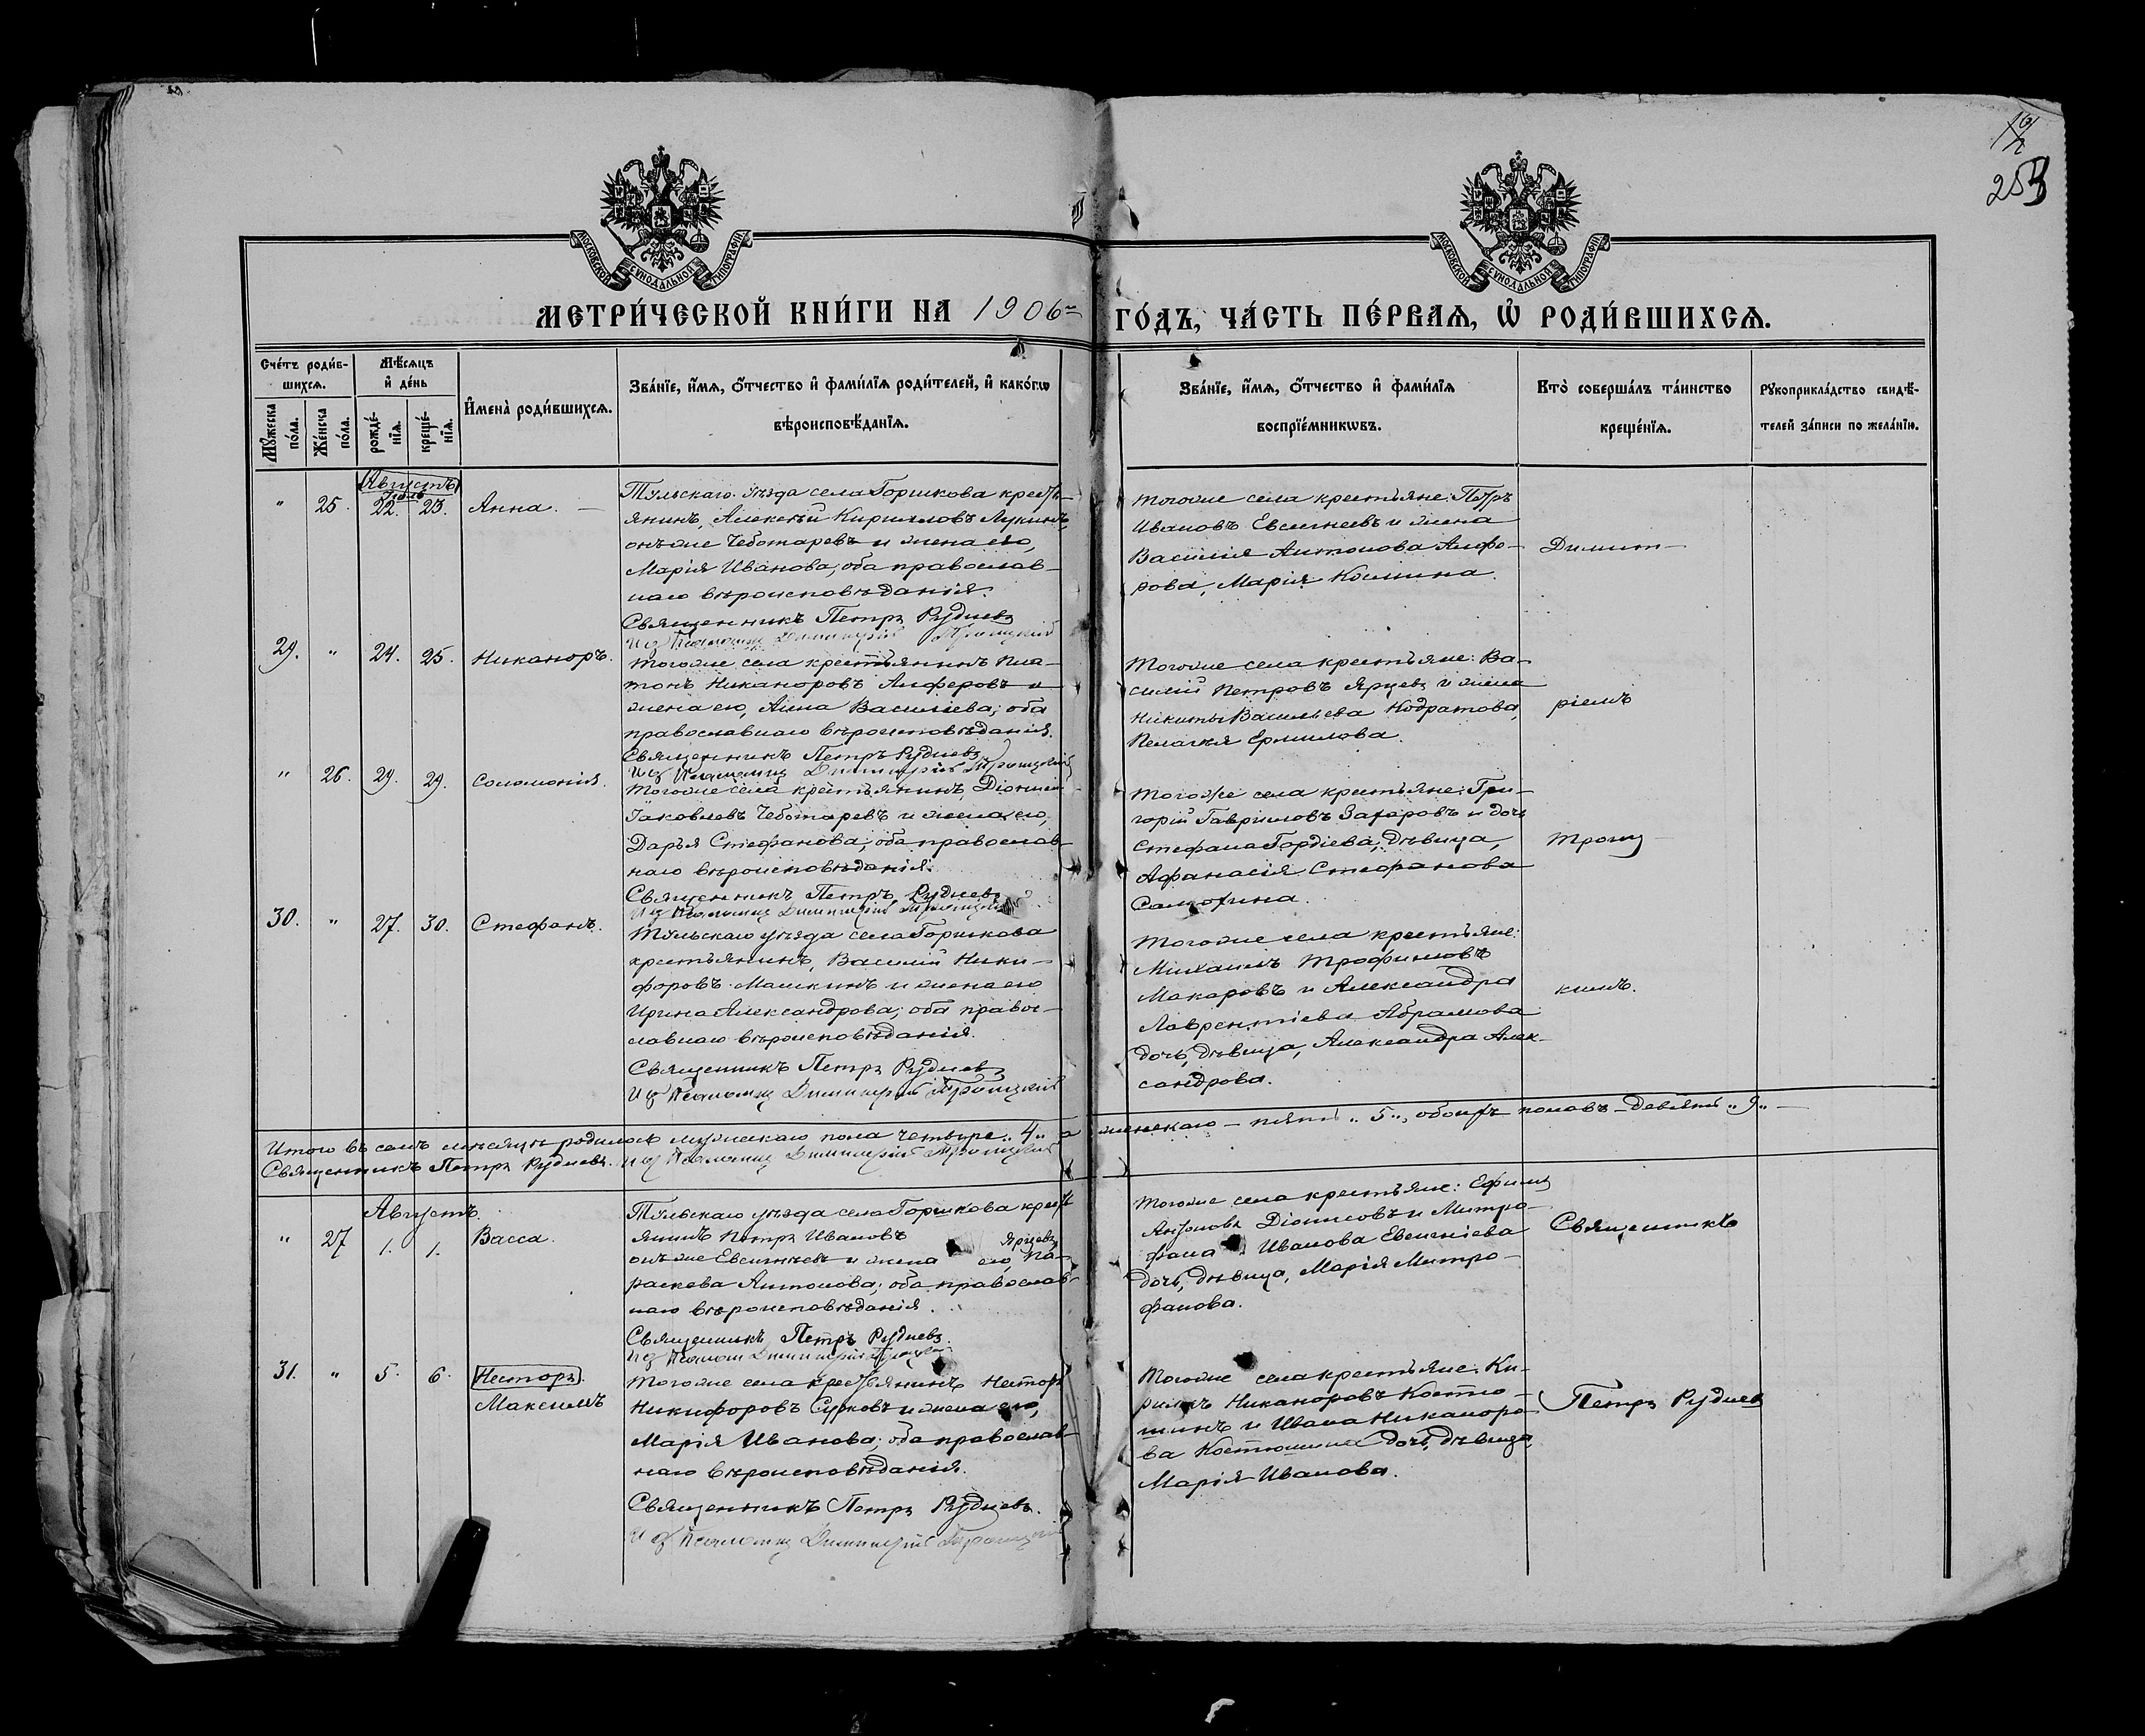 253
МОСКОВСКОЙ СѴНОДАЛЬНОЙ ТИПОГРАФІИ
МОСКОВСКОЙ СѴНОДАЛЬНОЙ ТИПОГРАФІИ
МЕТРИ́ЧЕСКОЙ КНИ́ГИ НА 1906 ГО́ДЪ, ЧА́СТЬ ПЕ́РВАѦ, Ѽ РОДИ́ВШИХСѦ.
Сче́тъ роди́в-
шихсѧ.
Мѣ́сѧцъ
и҆ де́нь
Мꙋ́жеска по́ла.
Же́нска по́ла.
рожде́-нїѧ.
креще́-нїѧ.
И҆мена̀ роди́вшихсѧ.
Зва́нїе, и҆́мѧ, ѻ҆́тчество и҆ фами́лїѧ роди́телей, и҆ како́гѡ
вѣроисповѣ́данїѧ.
Зва́нїе, и҆́мѧ, ѻ҆́тчество и҆ фами́лїѧ
воспрїе́мникѡвъ.
Кто̀ соверша́лъ та́инство
креще́нїѧ.
Рꙋкоприкла́дство свидѣ́-
телей за́писи по жела́нїю.
(Августъ)
Іюль
" 25. 22. 23. Анна.
Тульскаго уѣзда села Горшкова кресть-
янинъ, Алексѣй Кирилловъ Лукинъ,
онъ же Чеботаревъ и жена его,
Марія Иванова; оба православ-
наго вѣроисповѣданія.
Священникъ Петръ Рудневъ
Псаломщ Димитрій Троицкій
тогоже села крестьяне: Петръ
Ивановъ Евсигнеевъ и жена
Василія Антонова Алфе-
рова, Марія Космина.
Димит-
29. " 24. 25. Никаноръ.
тогоже села крестьянинъ Пла-
тонъ Никаноровъ Алферовъ и
жена его, Анна Василіева; оба
православнаго вѣроисповѣданія.
Священникъ Петръ Рудневъ
Псаломщ Димитрій Троицкій
тогоже села крестьяне: Ва-
силій Петровъ Ярцевъ и жена
Никиты Васильева Кодратова,
Пелагія Ермилова.
ріемъ
" 26. 29. 29. Соломонія.
тогоже села крестьянинъ, Діонисій
Іаковлевъ Чеботаревъ и жена его,
Дарья Стефанова; оба православ-
наго вѣроисповѣданія.
Священникъ Петръ Рудневъ
Псаломщ Димитрій Троицкій
тогоже села крестьяне: Гри-
горій Гавриловъ Захаровъ и дочь
Стефана Гордіева, дѣвица,
Афанасія Стефанова
Самохина.
Троиц-
30. " 27. 30. Стефанъ.
Тульскаго уѣзда села Горшкова
крестьянинъ, Василій Ники-
форовъ Машкинъ и жена его
Ирина Александрова; оба правос-
лавнаго вѣроисповѣданія.
Священникъ Петръ Рудневъ
Псаломщ Димитрій Троицкій
тогоже села крестьяне:
Михаилъ Трофимовъ
Макаровъ и Александра
Лаврентіева Абрамова
дочь, дѣвица, Александра Алек-
сандрова.
кимъ.
Итого въ семъ мѣсяцѣ родилось мужскаго пола четыре „4„ а женскаго – пять „5„, обоихъ половъ – девять „9„ –
Священникъ Петръ Рудневъ. Псаломщ Димитрій Троицкій
Августъ.
" 27 1. 1. Васса.
Тульскаго уѣзда села Горшкова кресть
янинъ Петръ Ивановъ Ярцевъ,
онъ же Евсигнеевъ и жена его, Па-
раскева Антонова; оба православ-
наго вѣроисповѣданія.
Священникъ Петръ Рудневъ.
Псаломщ Димитрій Троицкій
тогоже села крестьяне: Ефимъ
Антоновъ Діонисовъ и Митро-
фана Иванова Евсигнѣева
дочь, дѣвица, Марія Митро-
фанова.
Священникъ
31. " 5. 6. (Несторъ).
Максимъ
тогоже села крестьянинъ Несторъ
Никифоровъ Сурковъ и жена его,
Марія Иванова; оба православ-
наго вѣроисповѣданія.
Священникъ Петръ Рудневъ.
Псаломщ Димитрій Троицкій
тогоже села крестьяне: Ки-
риллъ Никаноровъ Костю-
шинъ и Ивана Никаноро-
ва Костюшина дочь, дѣвица
Марія Иванова.
Петръ Рудневъ